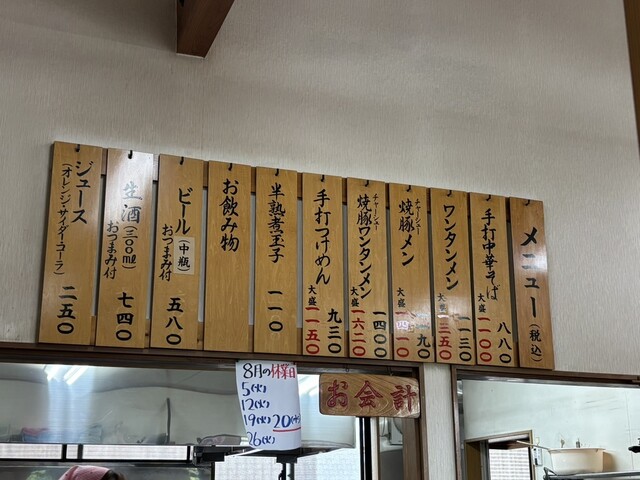 メニュー(税込)
手打中華そば 八八〇
大盛 一一〇〇
ワンタンメン 一一三〇
大盛 一三五〇
チャーシュー
焼豚メン 一一九〇
大盛 一四一〇
チャーシュー
焼豚ワンタンメン 一四〇〇
大盛 一六二〇
手打つけめん 九三〇
大盛 一一五〇
半熟煮玉子 一一〇
お飲み物
ビール(中瓶) 五八〇
おつまみ付
生酒(三〇〇ml) 七四〇
おつまみ付
ジュース
(オレンジ・サイダー・コーラ) 二五〇
8月の休業日
5(火)
12(火)
19(火) 20(水)
26(火)
お会計